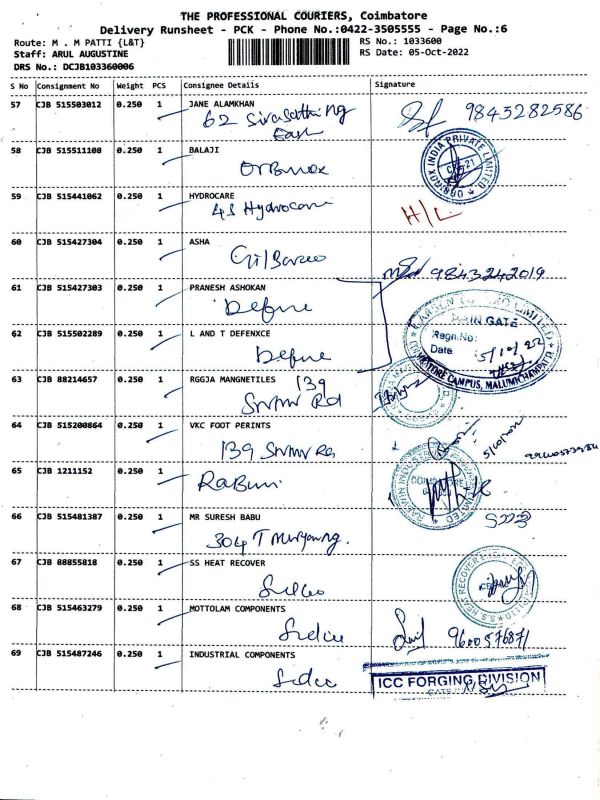 THE PROFESSIONAL COURIERS, Coimbatore
Delivery Runsheet - PCK - Phone No.:0422-3505555 - Page No.:6
Route: M . M PATTI {L&T}
RS No.: 1033600
Staff: ARUL AUGUSTINE
RS Date: 05-Oct-2022
DRS No.: DCJB103360006
S No Consignment No Weight PCS Consignee Details Signature
57 CJB 515503012 0.250 1 JANE ALAMKHAN
62
East
9843282586
58 CJB 515511108 0.250 1 BALAJI
INDIA PRIVATE LIMITED
59 CJB 515441062 0.250 1 HYDROCARE
45 Hydrocare
H/L
60 CJB 515427304 0.250 1 ASHA
9843242019
61 CJB 515427303 0.250 1 PRANESH ASHOKAN
Define
MAIN GATE
Regn.No:
Date 5/10/22
CAMPUS, MALUMICHAMPATTI
62 CJB 515502289 0.250 1 L AND T DEFENXCE
Define
63 CJB 88214657 0.250 1 RGGJA MANGNETILES
139
SNMV Rd
64 CJB 515200864 0.250 1 VKC FOOT PERINTS
139 SNMV Rd
65 CJB 1211152 0.250 1
66 CJB 515481387 0.250 1 MR SURESH BABU
304 T
67 CJB 88855818 0.250 1 SS HEAT RECOVER
Sidco
S.S. HEAT RECOVERY
68 CJB 515463279 0.250 1 MOTTOLAM COMPONENTS
Sidco
9600576871
69 CJB 515487246 0.250 1 INDUSTRIAL COMPONENTS
Sidco
ICC FORGING DIVISION